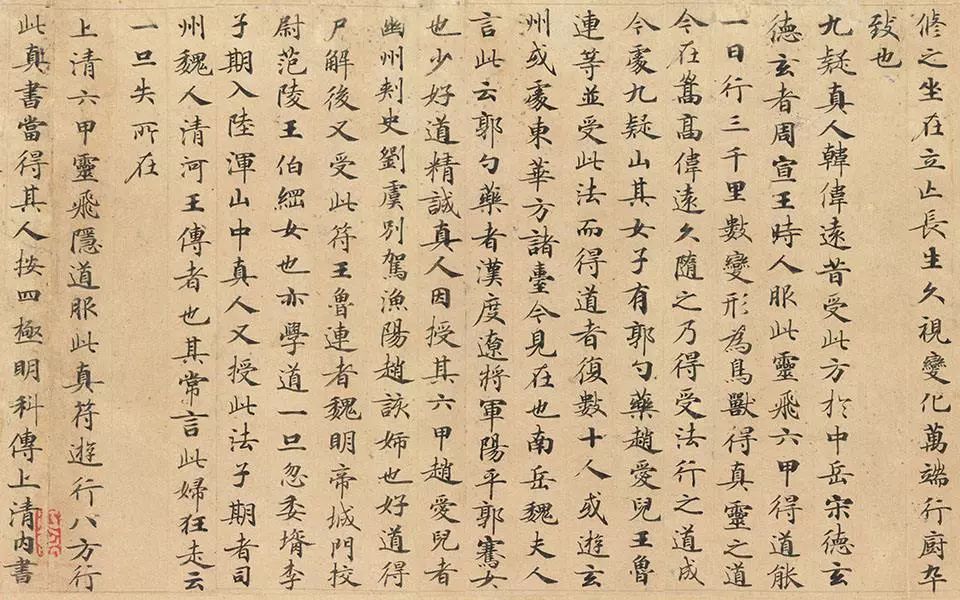 修之坐在立亡長生久視變化萬端行厨卒
致也
九疑真人韓偉遠昔受此方於中岳宋德玄
德玄者周宣王時人服此靈飛六甲得道能
一日行三千里數變形為鳥獸得真靈之道
今在嵩高偉遠久隨之乃得受法行之道成
今處九疑山其女子有郭勺藥趙愛兒王魯
連等並受此法而得道者復數十人或遊玄
州或處東華方諸臺今見在也南岳魏夫人
言此云郭勺藥者漢度遼將軍陽平郭騫女
也少好道精誠真人因授其六甲趙愛兒者
幽州刾史劉虞別駕漁陽趙該姉也好道得
尸解後又受此符王魯連者魏明帝城門校
尉范陵王伯綱女也亦學道一旦忽委壻李
子期入陸渾山中真人又授此法子期者司
州魏人清河王傳者也其常言此婦狂走云
一旦失所在
上清六甲靈飛隱道服此真符遊行八方行
此真書當得其人按四極明科傳上清內書